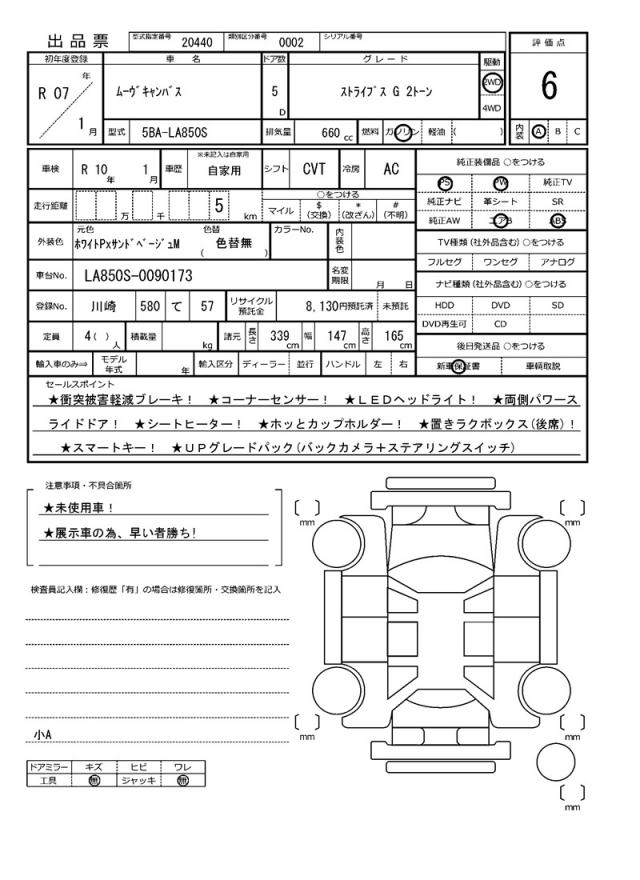 出品票 型式指定番号 20440 類別区分番号 0002 シリアル番号
評価点
初年度登録 車名 ドア数 グレード 駆動
R 07 年 1 月 ムーヴキャンバス 5 D ストライプス G 2トーン 2WD 4WD
6
型式 5BA-LA850S 排気量 660 cc 燃料 ガソリン 軽油 ( )
内装 A B C
車検 R 10 年 1 月 車歴 ※未記入は自家用 自家用 シフト CVT 冷房 AC
走行距離 万 千 5 km ○をつける マイル $ (交換) * (改ざん) # (不明)
外装色 元色 ホワイトPxサンドベージュM 色替 ( 色替無 ) カラーNo. 内装色
車台No. LA850S-0090173 名変期限 月 日
登録No. 川崎 580 て 57 リサイクル預託金 8,130円預託済 未預託
定員 4( ) 人 積載量 kg 諸元 長さ 339 cm 幅 147 cm 高さ 165 cm
輸入車のみ⇒ モデル年式 年 輸入区分 ディーラー 並行 ハンドル 左 右
純正装備品 ○をつける
PS PW 純正TV
純正ナビ 革シート SR
純正AW エアB ABS
TV種類(社外品含む)○をつける
フルセグ ワンセグ アナログ
ナビ種類(社外品含む)○をつける
HDD DVD SD
DVD再生可 CD
後日発送品 ○をつける
新車保証書 車輌取説
セールスポイント
★衝突被害軽減ブレーキ! ★コーナーセンサー! ★LEDヘッドライト! ★両側パワース
ライドドア! ★シートヒーター! ★ホッとカップホルダー! ★置きラクボックス(後席)!
★スマートキー! ★UPグレードパック(バックカメラ+ステアリングスイッチ)
注意事項・不具合箇所
★未使用車!
★展示車の為、早い者勝ち!
検査員記入欄:修復歴「有」の場合は修復箇所・交換箇所を記入
小A
ドアミラー キズ ヒビ ワレ
工具 無 ジャッキ 無
[ ] mm
[ ] mm
[ ] mm
[ ] mm
[ ] mm